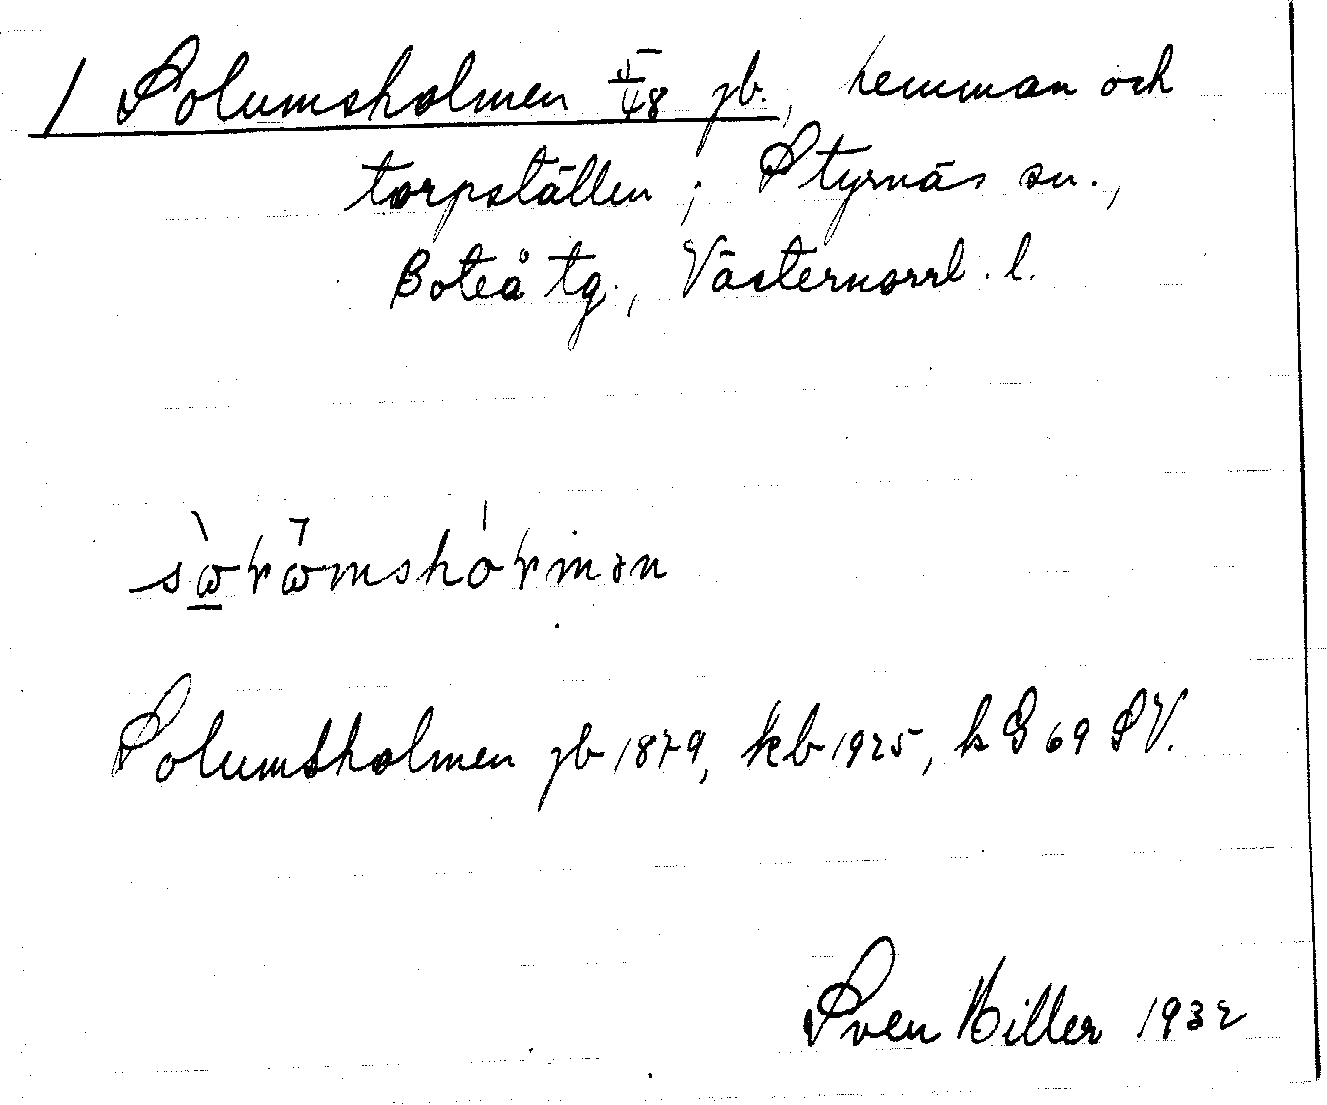 1 Solumsholmen 5/48 jb., hemman och
torpställen; Styrnäs sn.,
Boteå tg., Västernorrl. l.
Solumsholmen jb 1879, kb 1925, k G 69 SV.
Sven Hiller 1932